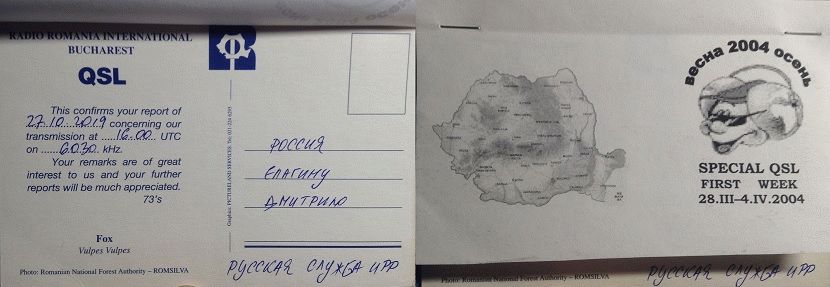 RADIO ROMANIA INTERNATIONAL
BUCHAREST
QSL
This confirms your report of
27.10.2019 concerning our
transmission at ......16.00.. UTC
on ......6030.. kHz.
Your remarks are of great
interest to us and your further
reports will be much appreciated.
73's
Fox
Vulpes Vulpes
Photo: Romanian National Forest Authority – ROMSILVA
Graphic: PICTURELAND SERVICES. Tel: 021-224 6295
РОССИЯ
ЕЛАГИНУ
ДМИТРИЮ
РУССКАЯ СЛУЖБА ИРР
весна 2004 осень
SPECIAL QSL
FIRST WEEK
28.III–4.IV.2004
Photo: Romanian National Forest Authority – ROMSILVA
РУССКАЯ СЛУЖБА ИРР